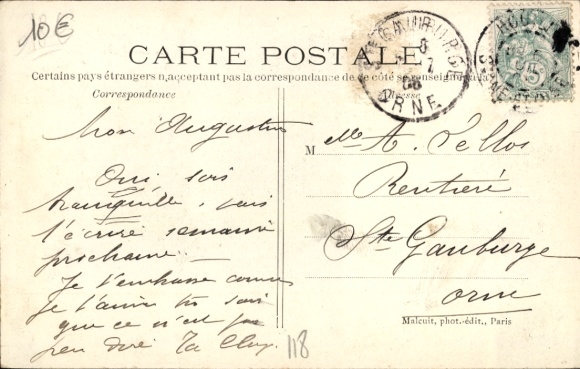 10€
CARTE POSTALE
Certains pays étrangers n'acceptant pas la correspondance de ce côté se renseigner à la
Correspondance
Adresse
Mon Augustin
Oui, sois
tranquille, vais
t'écrire semaine
prochaine
Je t'embrasse comme
je t'aime tu sais
que ce n'est pas
peu dire Ta
118
M lle A.
Rentière
Ste Gauburge
Orne
ORNE
Malcuit, phot.-édit., Paris